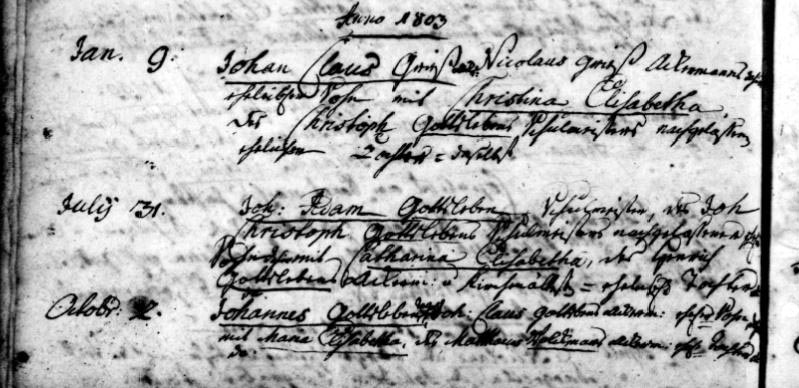 Anno 1803
Jan. 9. Johan Claus Grieß Nicolaus Grieß Ackermanns
ehelichen Sohn mit Christina Elisabetha,
des Christoph Gottslebens Schulmeisters nachgelaßen
ehelichen Tochter =
July 31. Joh: Adam Gottsleben Schulmeister, des Joh
Christoph Gottslebens Schulmeisters nachgelassener
Sohn mit Catharina Elisabetha, des Henrich
Gottslebens Ackerm: u = Tochter
Octobr: 2. Johannes Gottsleben Joh: Claus Gottslebens Ackerm: Sohn
mit Maria Elisabetha, des Matthaeus Ackerm: